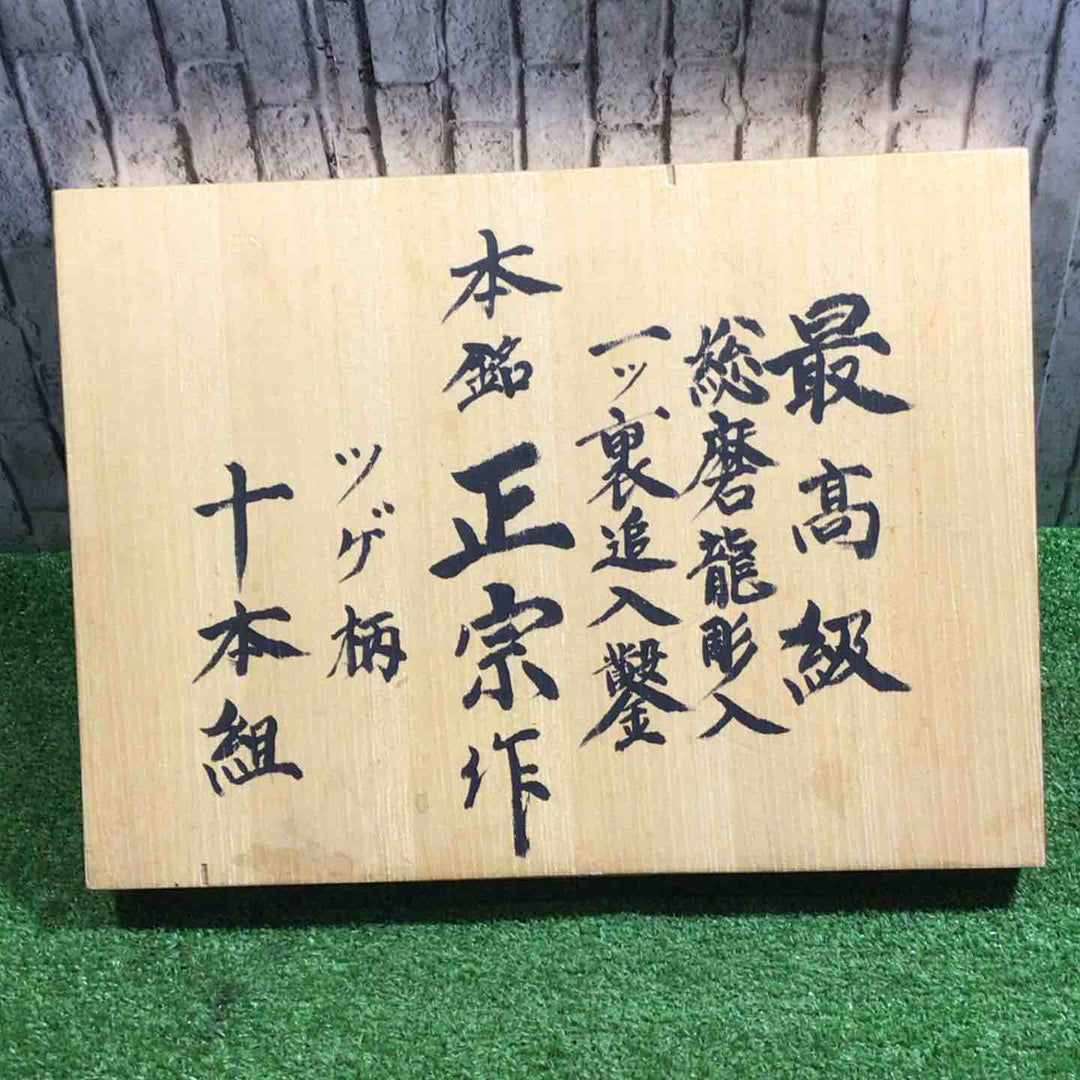 最高級
総磨龍彫入
一ッ裏追入鑿
本銘正宗作
ツゲ柄
十本組